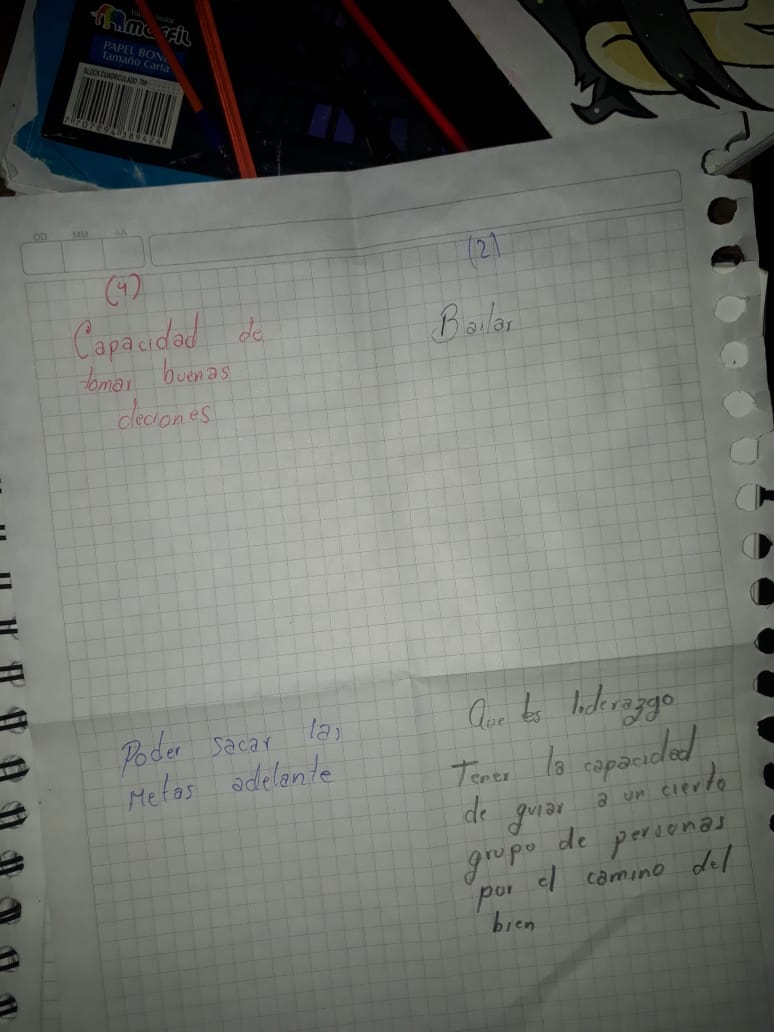 marfil
PAPEL BOND
Tamaño Carta
BLOCK CUADRICULADO 7MM
DD MM AA
(4)
Capacidad de
tomar buenas
deciones
(2)
Bailar
Poder sacar las
Metas adelante
Que es liderazgo
Tener la capacidad
de guiar a un cierto
grupo de personas
por el camino del
bien